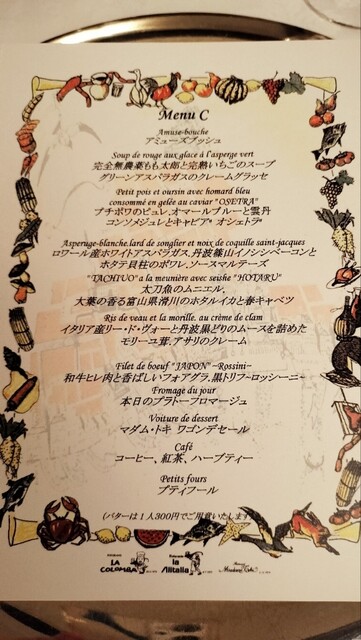 Menu C
Amuse-bouche
アミューズブッシュ
Soup de rouge aux glace à l'asperge vert
完全無農薬もも太郎と完熟いちごのスープ
グリーンアスパラガスのクレームグラッセ
Petit pois et oursin avec homard bleu
consommé en gelée au caviar "OSETRA"
プチポワのピュレ,オマールブルーと雲丹
コンソメジュレとキャビア・オシェトラ
Asperuge-blanche,lard de songlier et noix de coquille saint-jacques
ロワール産ホワイトアスパラガス,丹波篠山イノシシベーコンと
ホタテ貝柱のポワレ,ソースマルテーズ
"TACHIUO" a la meunière avec seishe "HOTARU"
太刀魚のムニエル,
大葉の香る富山県滑川のホタルイカと春キャベツ
Ris de veau et la morille, au crème de clam
イタリア産リー・ド・ヴォーと丹波黒どりのムースを詰めた
モリーユ茸,アサリのクレーム
Filet de boeuf "JAPON" ~Rossini~
和牛ヒレ肉と香ばしいフォアグラ,黒トリフ~ロッシーニ~
Fromage du jour
本日のプラトーフロマージュ
Voiture de dessert
マダム・トキ ワゴンデセール
Café
コーヒー、紅茶、ハーブティー
Petits fours
プティフール
(バターは1人300円でご用意いたします)
LA COLOMBA
la Alitalia